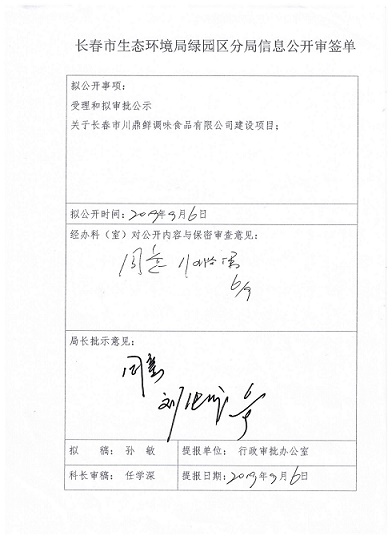 长春市生态环境局绿园区分局信息公开审签单
拟公开事项:
受理和拟审批公示
关于长春市川鼎鲜调味食品有限公司建设项目;
拟公开时间: 2019年9月6日
经办科(室)对公开内容与保密审查意见:
同意
6/9
局长批示意见:
同意
拟 稿: 孙 敏 提报单位: 行政审批办公室
科长审稿: 任学深 提报日期: 2019年9月6日